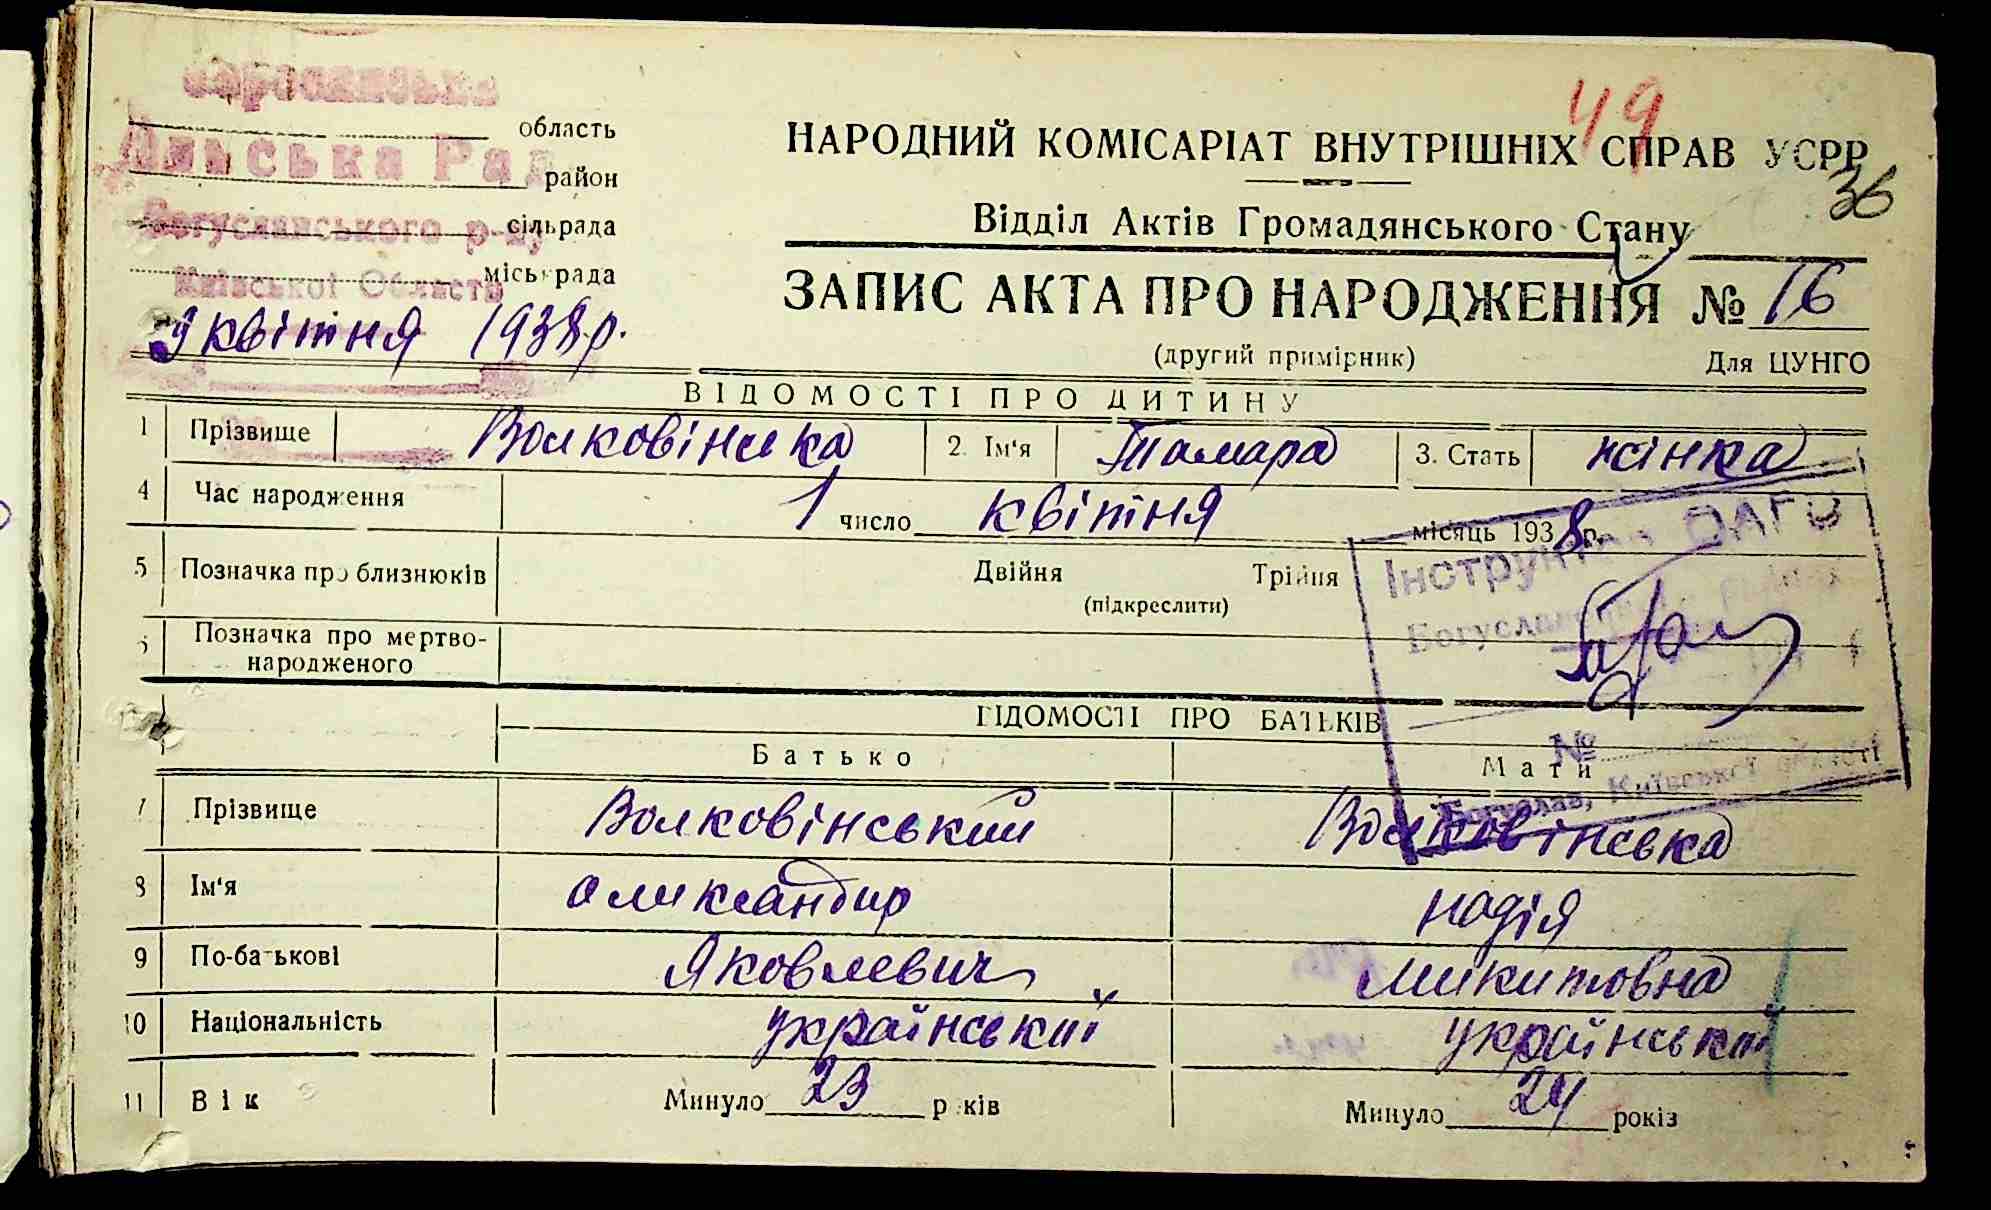 49
область
НАРОДНИЙ КОМІСАРІАТ ВНУТРІШНІХ СПРАВ УСРР
36
сільська Рад
район
Відділ Актів Громадянського Стану
Богуславського р-ну
сільрада
Київської Області
міськрада
ЗАПИС АКТА ПРО НАРОДЖЕННЯ № 16
9 квітня 1938 р.
(другий примірник) Для ЦУНГО
ВІДОМОСТІ ПРО ДИТИНУ
1 Прізвище Волковінська 2. Ім'я Тамара 3. Стать жінка
4 Час народження 1 число квітня місяць 1938 р.
Інструктор ОАГС
5 Позначка про близнюків Двійня Трійня
(підкреслити)
Богуслав
6 Позначка про мертво-
народженого
ВІДОМОСТІ ПРО БАТЬКІВ
№
Батько Мати
Богуслав, Київської області
7 Прізвище Волковінський Волковінська
8 Ім'я олександир надія
9 По-батькові Яковлевич микитовна
10 Національність український український
11 Вік Минуло 23 років Минуло 24 років